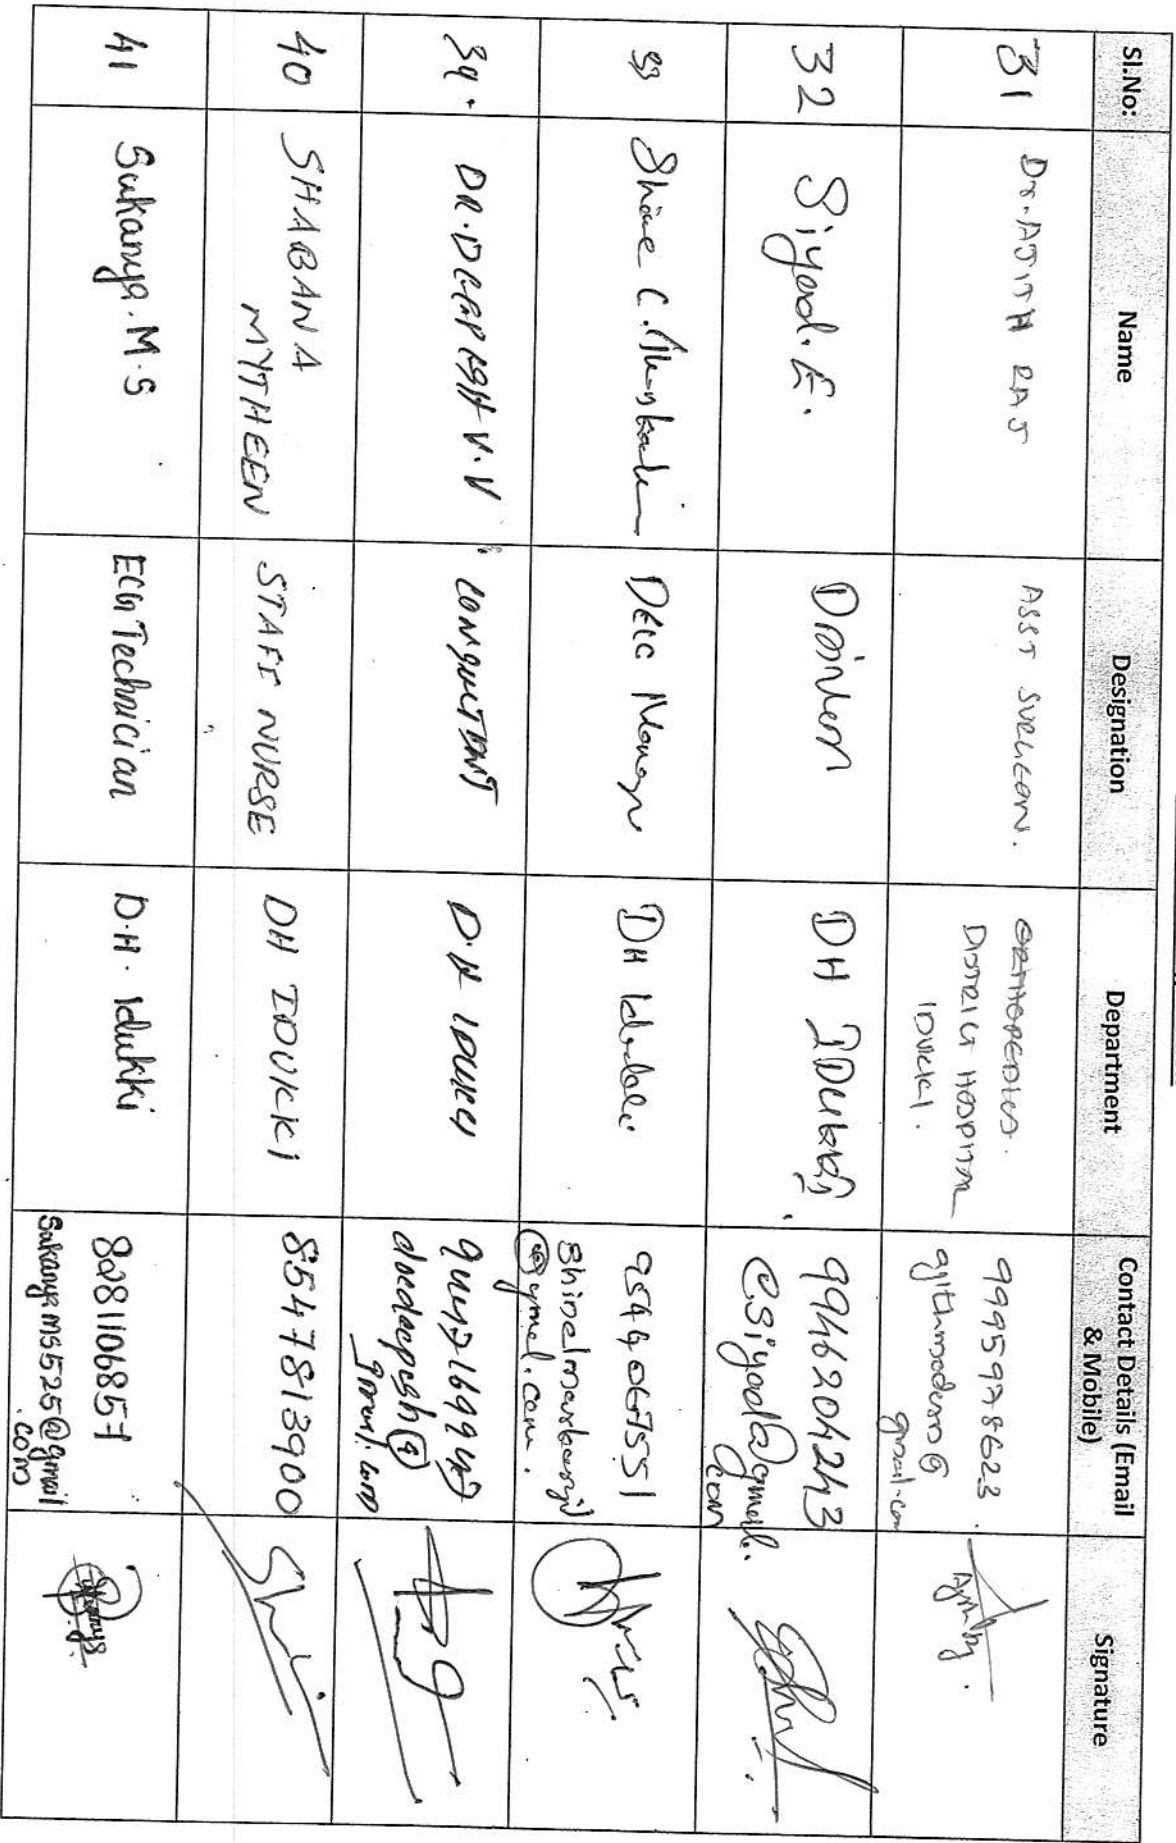 Sl.No: Name Designation Department Contact Details (Email & Mobile) Signature
31 Dr. AJITH RAJ ASST SURGEON. ORTHOPEDICS. DISTRICT HOSPITAL IDUKKI. 9995978623.
gmail.com
32 Siyad. E. Driver DH IDUKKI. 9946204243
e.siyad@gmail.com
Shine C. DEIC DH 9544067551
39. DR. DEEPESH V.V CONSULTANT D.H IDUKKI
drdeepesh
gmail.com
40 SHABANA MYTHEEN STAFF NURSE DH IDUKKI 8547813900
41 Sukanya. M.S ECG Technician D.H. Idukki 8281106857
Sukanyams525@gmail.com